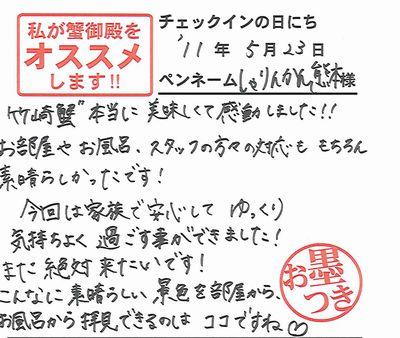 私が蟹御殿を
オススメ
します!!
チェックインの日にち
'11 年 5月23日
ペンネーム しゃりんかん熊本様
竹崎蟹"本当に美味しくて感動しました!!
お部屋やお風呂、スタッフの方々の対応も もちろん
素晴らしかったです!
今回は家族で安心して ゆっくり
気持ちよく 過ごす事ができました!
また絶対来たいです!
こんなに素晴らしい景色を部屋から、
お風呂から拝見できるのは ココですね♡
お墨つき